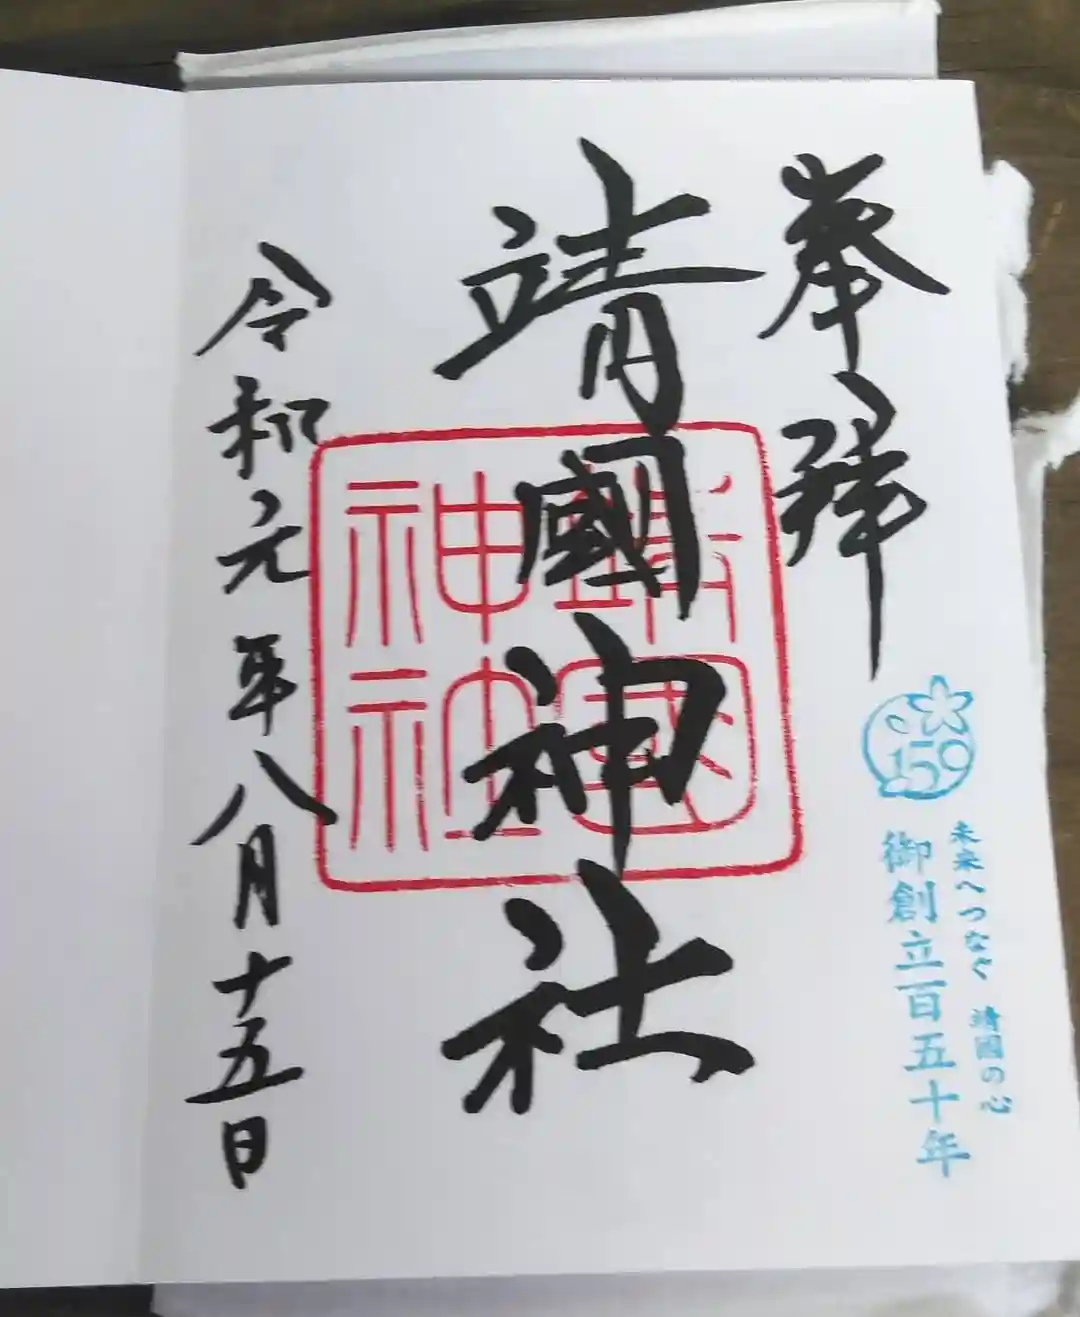 奉拝
靖國神社
靖國
神社
令和元年八月十五日
150
未来へつなぐ 靖国の心
御創立百五十年